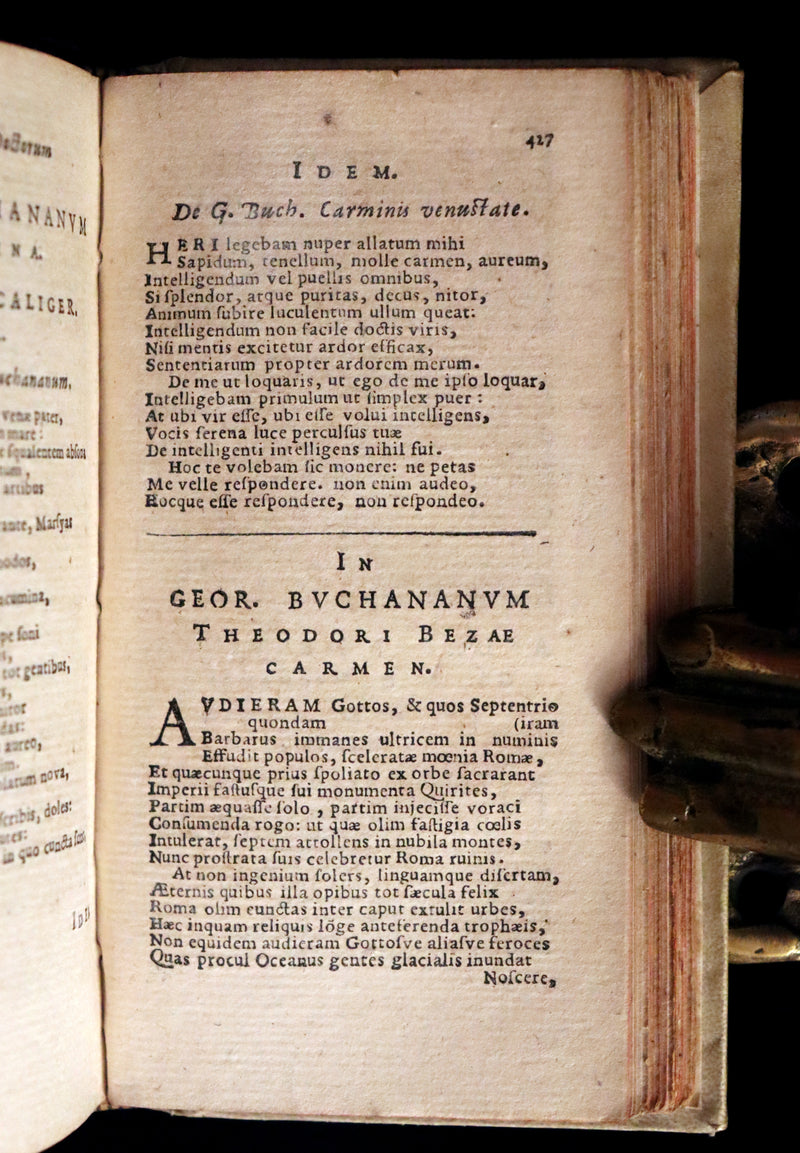 427
IDEM.
De G. Buch. Carminis venustate.
HERI legebam nuper allatum mihi
Sapidum, tenellum, molle carmen, aureum,
Intelligendum vel puellis omnibus,
Si ſplendor, atque puritas, decus, nitor,
Animum ſubire luculentum ullum queat:
Intelligendum non facile doctis viris,
Niſi mentis excitetur ardor efficax,
Sententiarum propter ardorem merum.
De me ut loquaris, ut ego de me ipſo loquar,
Intelligebam primulum ut ſimplex puer :
At ubi vir eſſe, ubi eſſe volui intelligens,
Vocis ſerena luce perculſus tuæ
De intelligenti intelligens nihil fui.
Hoc te volebam ſic monere: ne petas
Me velle reſpondere. non enim audeo,
Hocque eſſe reſpondere, non reſpondeo.
IN
GEOR. BVCHANANVM
THEODORI BEZAE
CARMEN.
AVDIERAM Gottos, & quos Septentrio
quondam (iram
Barbarus immanes ultricem in numinis
Effudit populos, ſceleratæ mœnia Romæ,
Et quæcunque prius ſpoliato ex orbe ſacrarant
Imperii faſtuſque ſui monumenta Quirites,
Partim æquaſſe ſolo , partim injeciſſe voraci
Conſumenda rogo: ut quæ olim faſtigia cœlis
Intulerat, ſeptem attollens in nubila montes,
Nunc proſtrata ſuis celebretur Roma ruinis.
At non ingenium ſolers, linguamque diſertam,
Æternis quibus illa opibus tot ſæcula felix
Roma olim cunctas inter caput extulit urbes,
Hæc inquam reliquis lõge anteferenda trophæis,
Non equidem audieram Gottoſve aliaſve feroces
Quas procul Oceanus gentes glacialis inundat
Noſcere,
ANANVM
NA.
CALIGER.
pater,
mare :
Marſyas
gentibus,
nova,
doles: